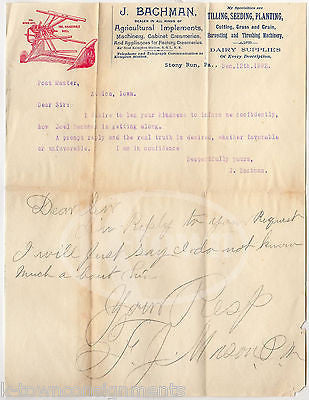 J. BACHMAN,
DEALER IN ALL KINDS OF
Agricultural Implements,
Machinery, Cabinet Creameries,
And Appliances for Factory Creameries.
Telephone and Telegraph Communication at
Kempton Station.
My Specialties are
TILLING, SEEDING, PLANTING,
Cutting, Grass and Grain,
Harvesting and Threshing Machinery,
—AND—
DAIRY SUPPLIES
Of Every Description.
Stony Run, Pa., Dec, 12th, 1892.
Post Master,
Iowa.
Dear Sir:
I desire to beg your kindness to inform me confidently,
how Joel Bachman is getting along.
A prompt reply and the real truth is desired, whether favorable
or unfavorable. I am in confidence
Respectfully yours,
J. Bachman.
Dear Sir
In Reply to your Request
I will just say I do not know
much about him.
Your Resp
F. J. Mason P.M.
k-townconsignments